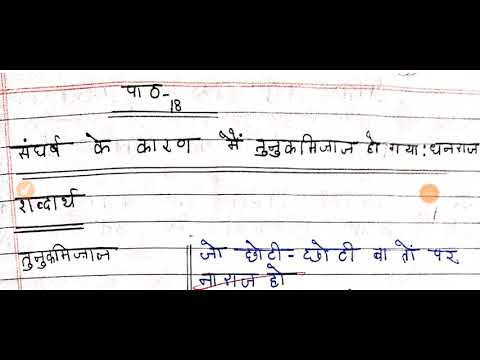 पाठ-18
संघर्ष के कारण मैं तुनुकमिजाज हो गया: धनराज
शब्दार्थ
तुनुकमिजाज
जो छोटी-छोटी बातों पर
नाराज हो